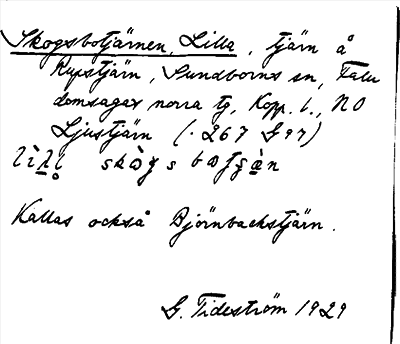 Skogsbotjärnen, Lilla, tjärn å
Rupstjärn, Sundborns sn, Falu
domsagas norra tg, Kopp. l., NO
Ljustjärn (· 267 G 97)
Kallas också Björnbackstjärn.
G. Tideström 1929